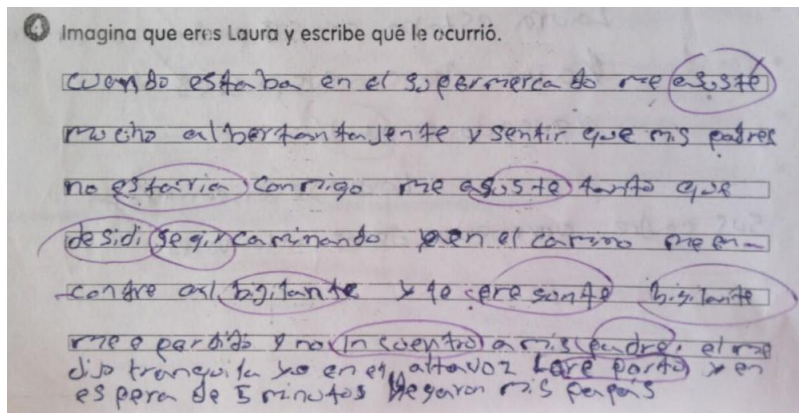 4 Imagina que eres Laura y escribe qué le ocurrió.
cuando estaba en el supermercado me asusté
mucho al ber tanta Jente y sentir que mis padres
no estaria conmigo me asuste tanto que
desidi segir caminando y en el camino me en-
contre al bigilante y le pregunte bigilante
me e perdido y no incuentro a mis padre. el me
dijo tranquila yo en el altavoz Lare porto y en
espera de 5 minutos llegaron mis papás